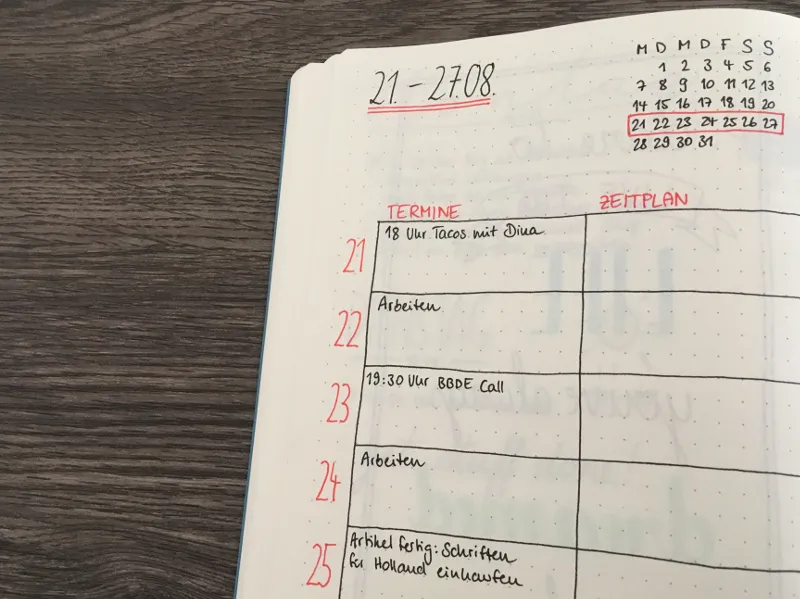 21. – 27.08.
M D M D F S S
1 2 3 4 5 6
7 8 9 10 11 12 13
14 15 16 17 18 19 20
21 22 23 24 25 26 27
28 29 30 31
TERMINE ZEITPLAN
21 18 Uhr Tacos mit Dina
22 Arbeiten
23 19:30 Uhr BBDE Call
24 Arbeiten
25 Artikel fertig: Schriften
für Holland einkaufen